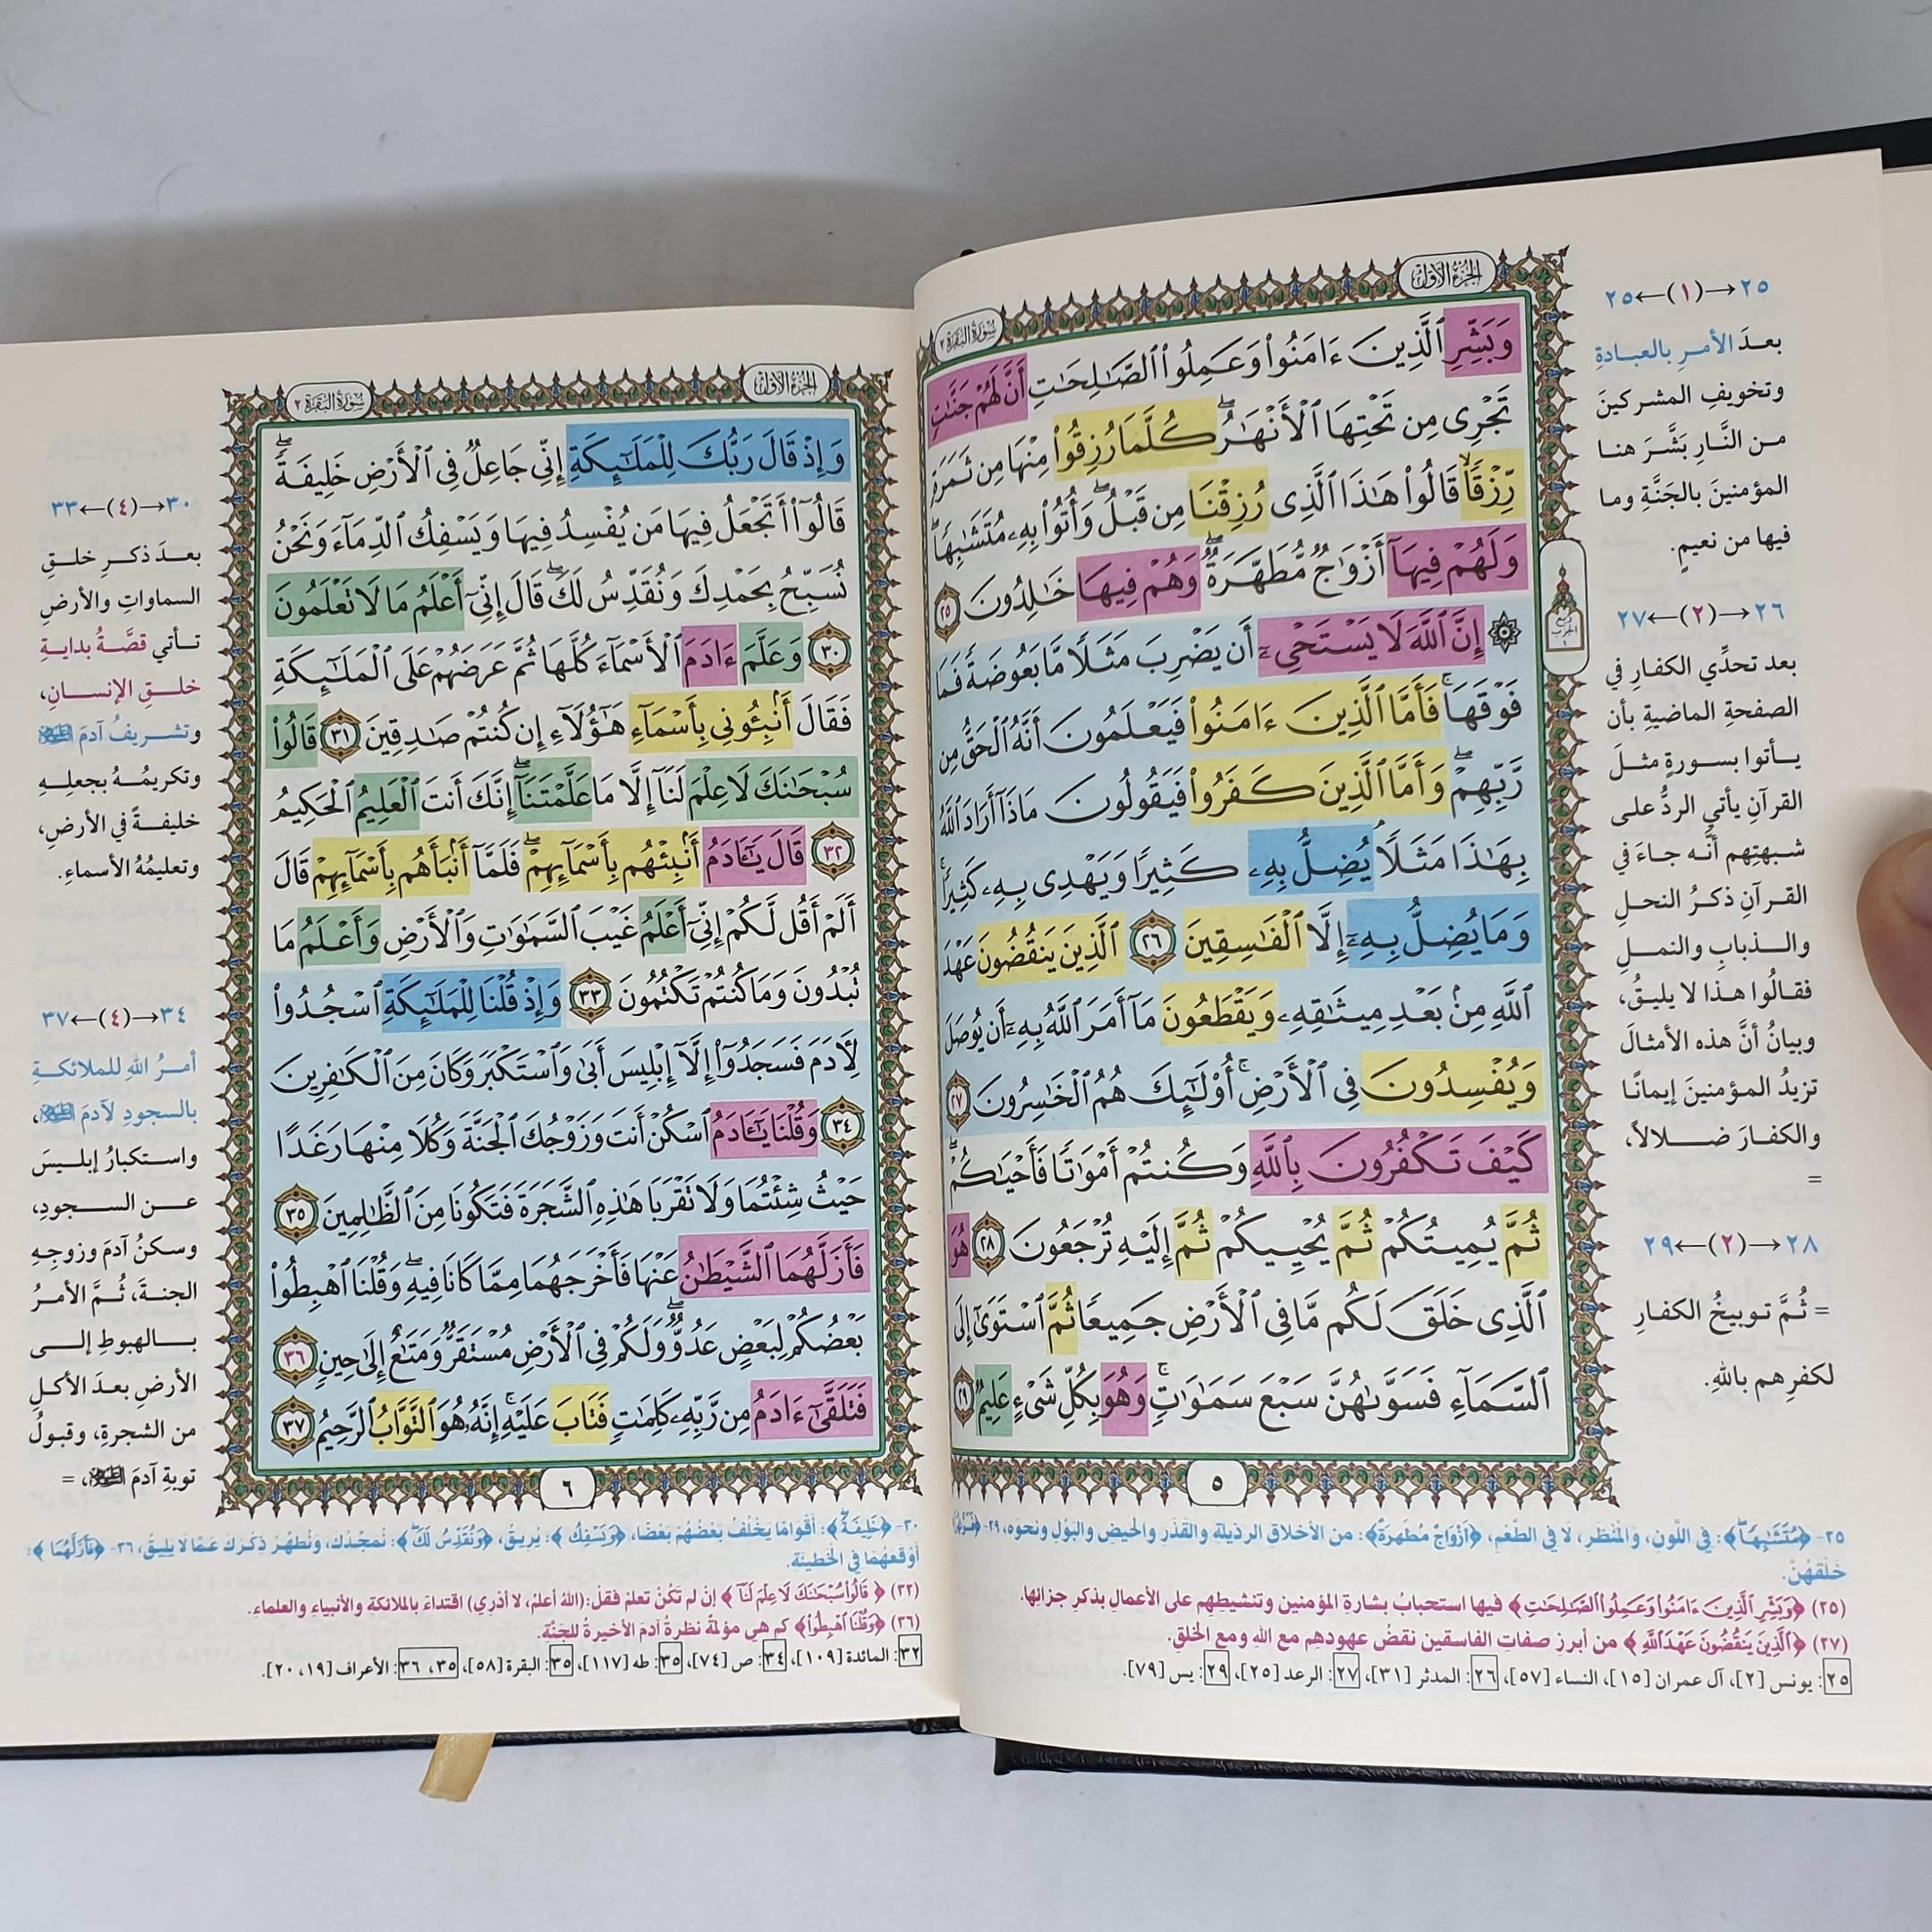 الجزء الأول
سورة البقرة ٢
وَبَشِّرِ ٱلَّذِينَ ءَامَنُوا۟ وَعَمِلُوا۟ ٱلصَّـٰلِحَـٰتِ أَنَّ لَهُمْ جَنَّـٰتٍ
تَجْرِى مِن تَحْتِهَا ٱلْأَنْهَـٰرُ ۖ كُلَّمَا رُزِقُوا۟ مِنْهَا مِن ثَمَرَةٍ
رِّزْقًا ۙ قَالُوا۟ هَـٰذَا ٱلَّذِى رُزِقْنَا مِن قَبْلُ ۖ وَأُتُوا۟ بِهِۦ مُتَشَـٰبِهًا ۖ
وَلَهُمْ فِيهَآ أَزْوَٰجٌ مُّطَهَّرَةٌ ۖ وَهُمْ فِيهَا خَـٰلِدُونَ ٢٥
۞ إِنَّ ٱللَّهَ لَا يَسْتَحْىِۦٓ أَن يَضْرِبَ مَثَلًا مَّا بَعُوضَةً فَمَا
فَوْقَهَا ۚ فَأَمَّا ٱلَّذِينَ ءَامَنُوا۟ فَيَعْلَمُونَ أَنَّهُ ٱلْحَقُّ مِن
رَّبِّهِمْ ۖ وَأَمَّا ٱلَّذِينَ كَفَرُوا۟ فَيَقُولُونَ مَاذَآ أَرَادَ ٱللَّهُ
بِهَـٰذَا مَثَلًا ۘ يُضِلُّ بِهِۦ كَثِيرًا وَيَهْدِى بِهِۦ كَثِيرًا ۚ
وَمَا يُضِلُّ بِهِۦٓ إِلَّا ٱلْفَـٰسِقِينَ ٢٦ ٱلَّذِينَ يَنقُضُونَ عَهْدَ
ٱللَّهِ مِنۢ بَعْدِ مِيثَـٰقِهِۦ وَيَقْطَعُونَ مَآ أَمَرَ ٱللَّهُ بِهِۦٓ أَن يُوصَلَ
وَيُفْسِدُونَ فِى ٱلْأَرْضِ ۚ أُو۟لَـٰٓئِكَ هُمُ ٱلْخَـٰسِرُونَ ٢٧
كَيْفَ تَكْفُرُونَ بِٱللَّهِ وَكُنتُمْ أَمْوَٰتًا فَأَحْيَـٰكُمْ ۖ
ثُمَّ يُمِيتُكُمْ ثُمَّ يُحْيِيكُمْ ثُمَّ إِلَيْهِ تُرْجَعُونَ ٢٨ هُوَ
ٱلَّذِى خَلَقَ لَكُم مَّا فِى ٱلْأَرْضِ جَمِيعًا ثُمَّ ٱسْتَوَىٰٓ إِلَى
ٱلسَّمَآءِ فَسَوَّىٰهُنَّ سَبْعَ سَمَـٰوَٰتٍ ۚ وَهُوَ بِكُلِّ شَىْءٍ عَلِيمٌ ٢٩
٥
ربع الحزب ١
٢٥→(١)←٢٥
بعدَ الأمرِ بالعبادةِ
وتخويفِ المشركينَ
من النَّارِ بَشَّرَ هنا
المؤمنينَ بالجَنَّةِ وما
فيها من نعيمٍ.
٢٦→(٢)←٢٧
بعد تحدِّي الكفارِ في
الصفحةِ الماضيةِ بأن
يأتوا بسورةٍ مثلَ
القرآنِ يأتي الردُّ على
شبهتِهم أنَّه جاءَ في
القرآنِ ذكرُ النحلِ
والذبابِ والنملِ
فقالُوا هذا لا يليقُ،
وبيانُ أنَّ هذه الأمثالَ
تزيدُ المؤمنينَ إيمانًا
والكفارَ ضلالاً،
=
٢٨→(٢)←٢٩
= ثُمَّ توبيخُ الكفارِ
لكفرِهم باللهِ.
٢٥- ﴿مُتَشَـٰبِهًا﴾: فِي اللَّونِ، والمَنْظَرِ، لا فِي الطَّعْمِ، ﴿أَزْوَٰجٌ مُّطَهَّرَةٌ﴾: مِن الأخلاقِ الرذيلةِ والقَذَرِ والحَيضِ والبَوْلِ ونحوِه، ٢٩-
خَلَقَهُنَّ.
(٢٥) ﴿وَبَشِّرِ ٱلَّذِينَ ءَامَنُوا۟ وَعَمِلُوا۟ ٱلصَّـٰلِحَـٰتِ﴾ فيها استحبابُ بشارةِ المؤمنين وتنشيطِهم على الأعمالِ بذكرِ جزائِها.
(٢٧) ﴿ٱلَّذِينَ يَنقُضُونَ عَهْدَ ٱللَّهِ﴾ من أبرزِ صفاتِ الفاسقين نقضُ عهودِهم مع اللهِ ومع الخلقِ.
٢٥: يونس [٢]، آل عمران [١٥]، النساء [٥٧]، ٢٦: المدثر [٣١]، ٢٧: الرعد [٢٥]، ٢٩: يس [٧٩].
الجزء الأول
سورة البقرة ٢
وَإِذْ قَالَ رَبُّكَ لِلْمَلَـٰٓئِكَةِ إِنِّى جَاعِلٌ فِى ٱلْأَرْضِ خَلِيفَةً ۖ
قَالُوٓا۟ أَتَجْعَلُ فِيهَا مَن يُفْسِدُ فِيهَا وَيَسْفِكُ ٱلدِّمَآءَ وَنَحْنُ
نُسَبِّحُ بِحَمْدِكَ وَنُقَدِّسُ لَكَ ۖ قَالَ إِنِّىٓ أَعْلَمُ مَا لَا تَعْلَمُونَ
٣٠ وَعَلَّمَ ءَادَمَ ٱلْأَسْمَآءَ كُلَّهَا ثُمَّ عَرَضَهُمْ عَلَى ٱلْمَلَـٰٓئِكَةِ
فَقَالَ أَنۢبِـُٔونِى بِأَسْمَآءِ هَـٰٓؤُلَآءِ إِن كُنتُمْ صَـٰدِقِينَ ٣١ قَالُوا۟
سُبْحَـٰنَكَ لَا عِلْمَ لَنَآ إِلَّا مَا عَلَّمْتَنَآ ۖ إِنَّكَ أَنتَ ٱلْعَلِيمُ ٱلْحَكِيمُ
٣٢ قَالَ يَـٰٓـَٔادَمُ أَنۢبِئْهُم بِأَسْمَآئِهِمْ ۖ فَلَمَّآ أَنۢبَأَهُم بِأَسْمَآئِهِمْ قَالَ
أَلَمْ أَقُل لَّكُمْ إِنِّىٓ أَعْلَمُ غَيْبَ ٱلسَّمَـٰوَٰتِ وَٱلْأَرْضِ وَأَعْلَمُ مَا
تُبْدُونَ وَمَا كُنتُمْ تَكْتُمُونَ ٣٣ وَإِذْ قُلْنَا لِلْمَلَـٰٓئِكَةِ ٱسْجُدُوا۟
لِـَٔادَمَ فَسَجَدُوٓا۟ إِلَّآ إِبْلِيسَ أَبَىٰ وَٱسْتَكْبَرَ وَكَانَ مِنَ ٱلْكَـٰفِرِينَ
٣٤ وَقُلْنَا يَـٰٓـَٔادَمُ ٱسْكُنْ أَنتَ وَزَوْجُكَ ٱلْجَنَّةَ وَكُلَا مِنْهَا رَغَدًا
حَيْثُ شِئْتُمَا وَلَا تَقْرَبَا هَـٰذِهِ ٱلشَّجَرَةَ فَتَكُونَا مِنَ ٱلظَّـٰلِمِينَ ٣٥
فَأَزَلَّهُمَا ٱلشَّيْطَـٰنُ عَنْهَا فَأَخْرَجَهُمَا مِمَّا كَانَا فِيهِ ۖ وَقُلْنَا ٱهْبِطُوا۟
بَعْضُكُمْ لِبَعْضٍ عَدُوٌّ ۖ وَلَكُمْ فِى ٱلْأَرْضِ مُسْتَقَرٌّ وَمَتَـٰعٌ إِلَىٰ حِينٍ ٣٦
فَتَلَقَّىٰٓ ءَادَمُ مِن رَّبِّهِۦ كَلِمَـٰتٍ فَتَابَ عَلَيْهِ ۚ إِنَّهُۥ هُوَ ٱلتَّوَّابُ ٱلرَّحِيمُ ٣٧
٦
٣٠→(٤)←٣٣
بعدَ ذكرِ خلقِ
السماواتِ والأرضِ
تأتي قصَّةُ بدايةِ
خلقِ الإنسانِ،
وتشريفُ آدمَ
وتكريمُهُ بجعلِهِ
خليفةً في الأرضِ،
وتعليمُهُ الأسماءِ.
٣٤→(٤)←٣٧
أمرُ اللهِ للملائكةِ
بالسجودِ لآدمَ ،
واستكبارُ إبليسَ
عن السجودِ،
وسكنُ آدمَ وزوجِهِ
الجنةَ، ثُمَّ الأمرُ
بالهبوطِ إلى
الأرضِ بعدَ الأكلِ
من الشجرةِ، وقبولُ
توبةِ آدمَ ، =
٣٠- ﴿خَلِيفَةً﴾: أقوامًا يَخْلُفُ بَعْضُهُمْ بَعْضًا، ﴿وَيَسْفِكُ﴾: يُرِيقُ، ﴿وَنُقَدِّسُ لَكَ﴾: نُمَجِّدُكَ، ونُطَهِّرُ ذِكْرَكَ عَمَّا لا يليقُ، ٣٦- ﴿فَأَزَلَّهُمَا﴾:
أَوْقَعَهُمَا فِي الخَطِيئَةِ.
(٣٢) ﴿قَالُوا۟ سُبْحَـٰنَكَ لَا عِلْمَ لَنَآ﴾ إن لم تكنْ تعلمُ فقلْ: (اللهُ أعلمُ، لا أدْرِي) اقتداءً بالملائكةِ والأنبياءِ والعلماءِ.
(٣٦) ﴿وَقُلْنَا ٱهْبِطُوا۟﴾ كم هي مؤلمةٌ نظرةُ آدمَ الأخيرةُ للجَنَّة.
٣٢: المائدة [١٠٩]، ٣٤: ص [٧٤]، ٣٥: طه [١١٧]، ٣٥: البقرة [٥٨]، ٣٥، ٣٦: الأعراف [١٩، ٢٠].